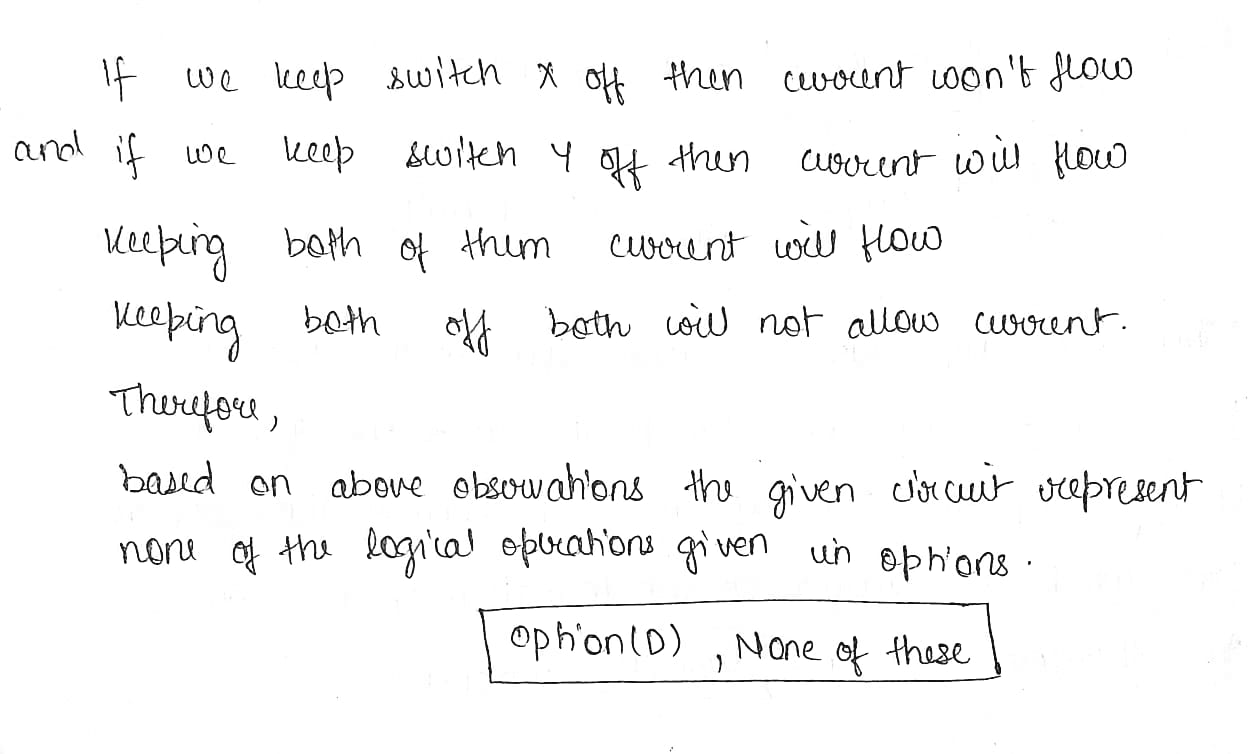 If we keep switch X off then current won't flow
and if we keep switch Y off then current will flow
Keeping both of them current will flow
Keeping both off both will not allow current.
Therefore,
based on above observations the given circuit represent
none of the logical operations given in options.
option(D), None of these